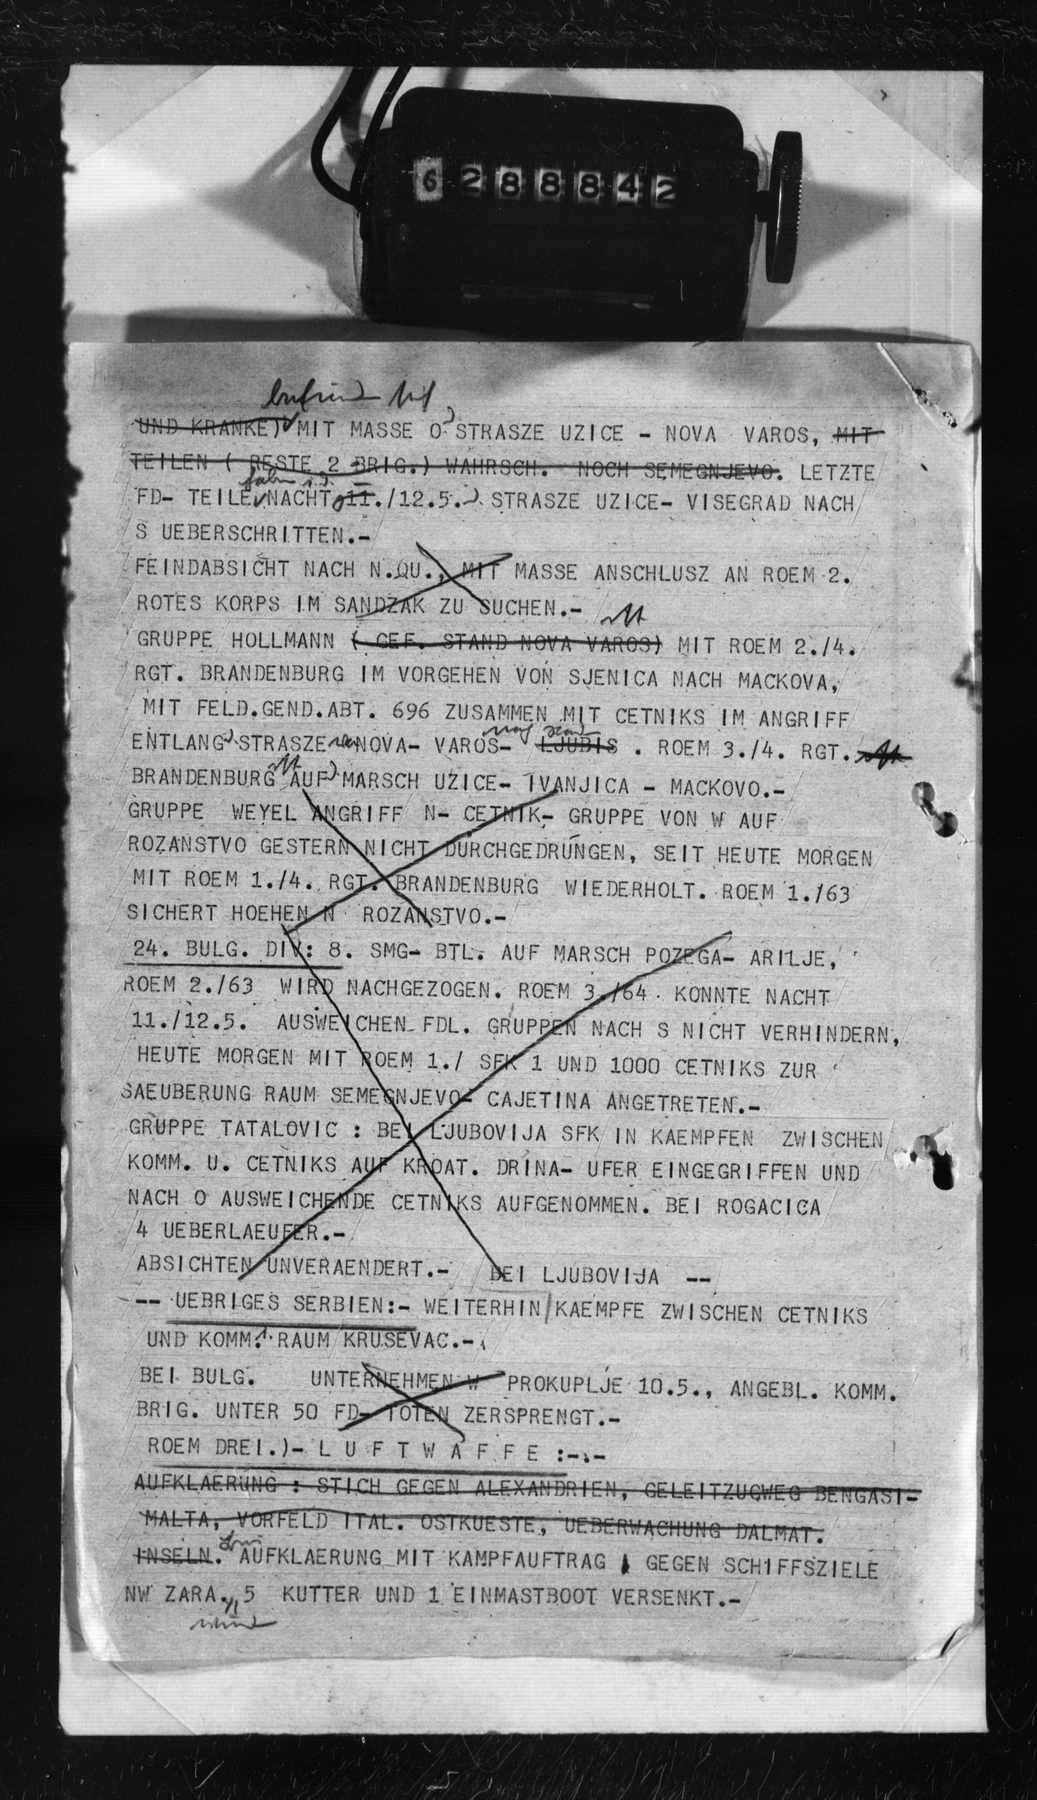 6288842
UND KRANKE) MIT MASSE O STRASZE UZICE - NOVA VAROS, MIT
TEILEN ( RESTE 2 BRIG.) WAHRSCH. NOCH SEMEGNJEVO. LETZTE
FD- TEILE NACHT 11./12.5. STRASZE UZICE- VISEGRAD NACH
S UEBERSCHRITTEN.-
FEINDABSICHT NACH N.QU., MIT MASSE ANSCHLUSZ AN ROEM 2.
ROTES KORPS IM SANDZAK ZU SUCHEN.-
GRUPPE HOLLMANN ( GEF. STAND NOVA VAROS) MIT ROEM 2./4.
RGT. BRANDENBURG IM VORGEHEN VON SJENICA NACH MACKOVA,
MIT FELD.GEND.ABT. 696 ZUSAMMEN MIT CETNIKS IM ANGRIFF
ENTLANG STRASZE NOVA- VAROS- LJUBIS . ROEM 3./4. RGT.
BRANDENBURG AUF MARSCH UZICE- IVANJICA - MACKOVO.-
GRUPPE WEYEL ANGRIFF N- CETNIK- GRUPPE VON W AUF
ROZANSTVO GESTERN NICHT DURCHGEDRUNGEN, SEIT HEUTE MORGEN
MIT ROEM 1./4. RGT. BRANDENBURG WIEDERHOLT. ROEM 1./63
SICHERT HOEHEN N ROZANSTVO.-
24. BULG. DIV: 8. SMG- BTL. AUF MARSCH POZEGA- ARILJE,
ROEM 2./63 WIRD NACHGEZOGEN. ROEM 3./64 KONNTE NACHT
11./12.5. AUSWEICHEN FDL. GRUPPEN NACH S NICHT VERHINDERN,
HEUTE MORGEN MIT ROEM 1./ SFK 1 UND 1000 CETNIKS ZUR
SAEUBERUNG RAUM SEMEGNJEVO- CAJETINA ANGETRETEN.-
GRUPPE TATALOVIC : BEI LJUBOVIJA SFK IN KAEMPFEN ZWISCHEN
KOMM. U. CETNIKS AUF KROAT. DRINA- UFER EINGEGRIFFEN UND
NACH O AUSWEICHENDE CETNIKS AUFGENOMMEN. BEI ROGACICA
4 UEBERLAEUFER.-
ABSICHTEN UNVERAENDERT.- BEI LJUBOVIJA --
-- UEBRIGES SERBIEN:- WEITERHIN KAEMPFE ZWISCHEN CETNIKS
UND KOMM. RAUM KRUSEVAC.-
BEI BULG. UNTERNEHMEN W PROKUPLJE 10.5., ANGEBL. KOMM.
BRIG. UNTER 50 FD- TOTEN ZERSPRENGT.-
ROEM DREI.)- L U F T W A F F E :-.-
AUFKLAERUNG : STICH GEGEN ALEXANDRIEN, GELEITZUGWEG BENGASI-
MALTA, VORFELD ITAL. OSTKUESTE, UEBERWACHUNG DALMAT.
INSELN. AUFKLAERUNG MIT KAMPFAUFTRAG GEGEN SCHIFFSZIELE
NW ZARA. 5 KUTTER UND 1 EINMASTBOOT VERSENKT.-